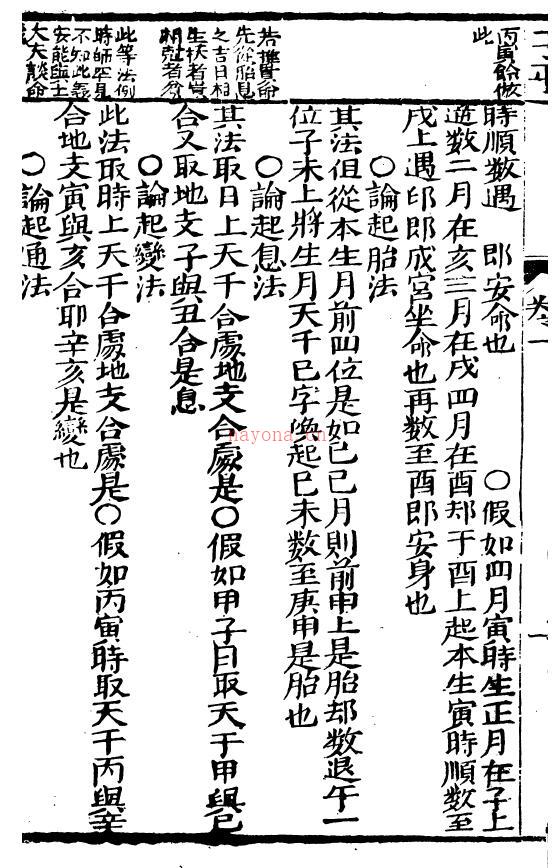 時順數遇　即安命也　○假如四月寅時生正月在子上
逆數二月在亥三月在戌四月在酉却于酉上起本生寅時順數至
戌上遇卯即戌宮坐命也再數至酉即安身也
○論起胎法
其法但從本生月前四位是如己巳月則前申上是胎却數退午一
位于未上將生月天干己字喚起己未數至庚申是胎也
○論起息法
其法取日上天干合處地支合處是○假如甲子日取天干甲與己
合又取地支子與丑合是息
○論起變法
此法取時上天干合處地支合處是○假如丙寅時取天干丙與辛
合地支寅與亥合耶辛亥是變也
○論起通法
丙寅餘倣
此
若推貴命
先從胎息
之吉日相
生扶者貴
相尅者
此等法例
時師罕見
不知此義
安能與士
大夫談命
卷一
nayona.cn